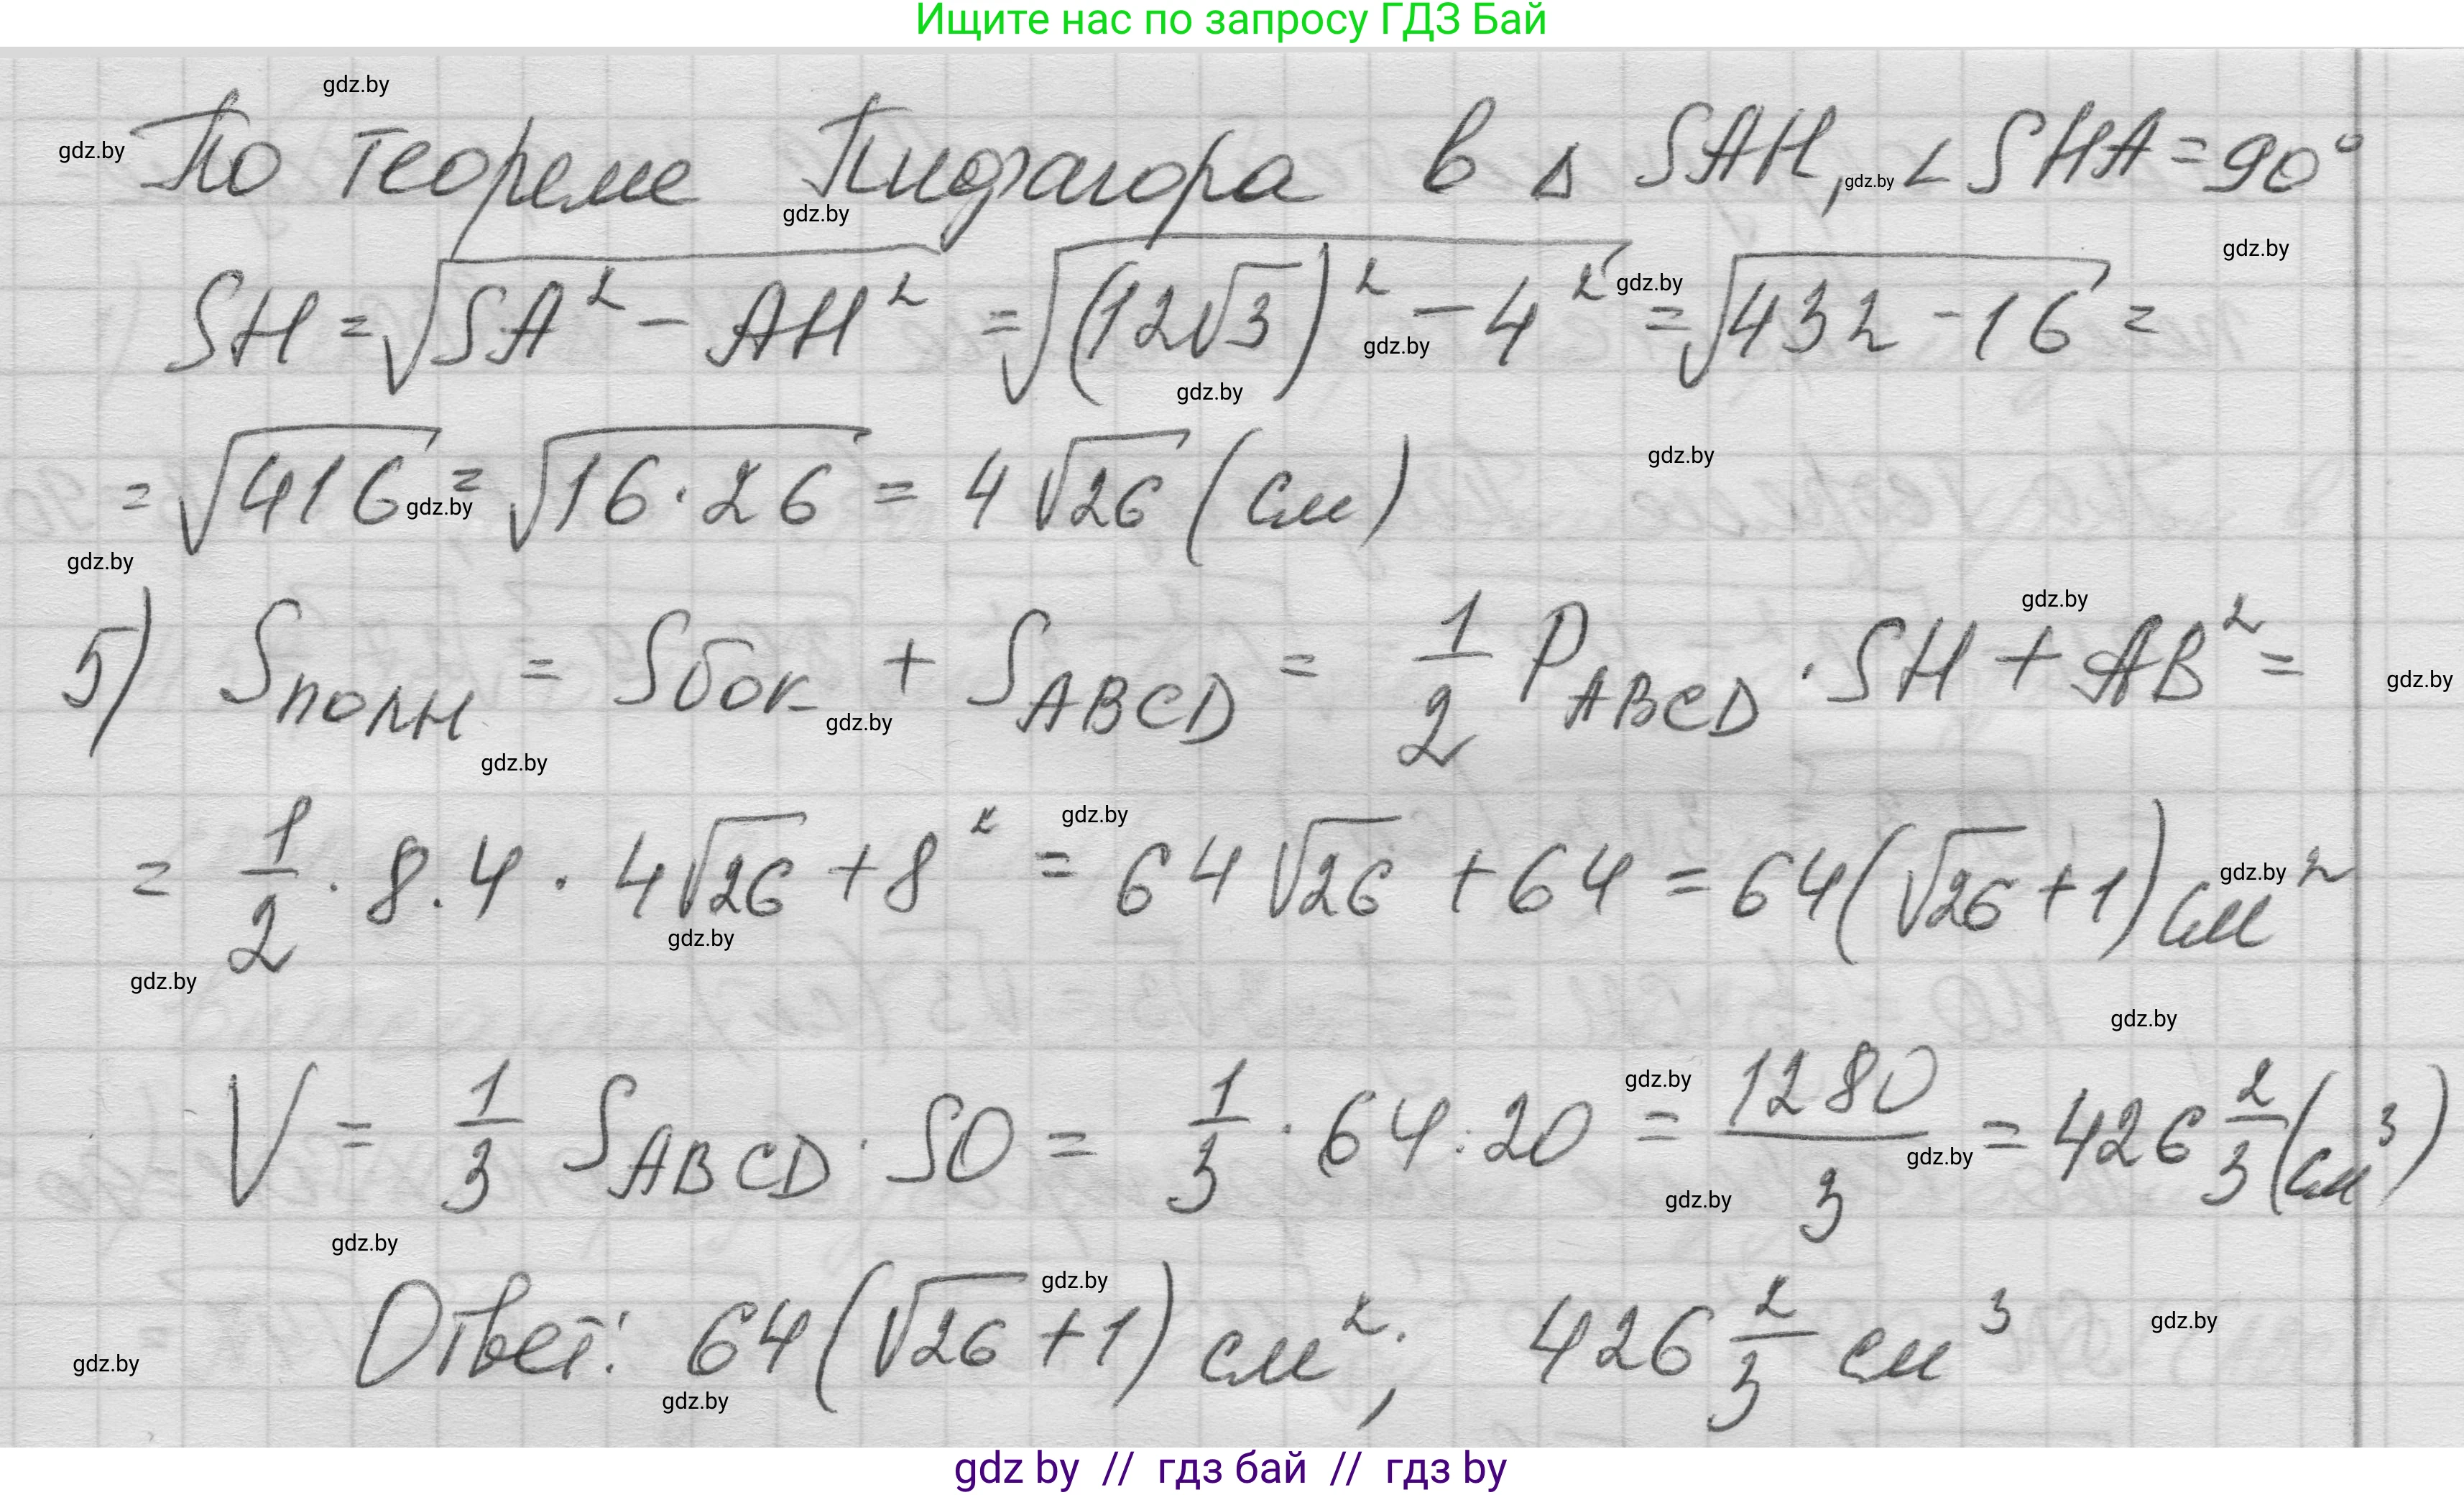 Ищите нас по запросу ГДЗ Бай
gdz.by
gdz.by По теореме Пифагора в Δ SAH, gdz.by ∠SHA = 90°
gdz.by
gdz.by
SH = √(SA² − AH²) = √((12√3)² − 4²) gdz.by = √(432 − 16) =
gdz.by
gdz.by
= √416 gdz.by = √(16 · 26) = 4√26 (см) gdz.by
gdz.by
gdz.by
5) Sполн = Sбок gdz.by + S ABCD = 1/2 P ABCD · SH + AB² = gdz.by
gdz.by
gdz.by
= 1/2 · 8 · 4 · 4√26 + 8² = 64√26 + 64 = 64(√26 + 1) см² gdz.by
gdz.by
gdz.by
gdz.by
V = 1/3 S ABCD · SO = 1/3 · 64 · 20 gdz.by = 1280/3 gdz.by = 426 2/3 (см³)
gdz.by
gdz.by
gdz.by
Ответ: 64(√26 + 1) см²; 426 2/3 см³ gdz.by
gdz.by
gdz.by
gdz by // гдз бай // гдз by